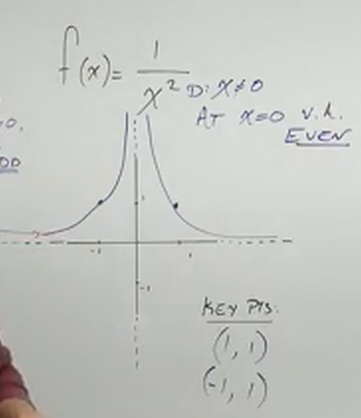 f(x) = 1/x²
D: x≠0
0,
AT x=0 V.A.
EVEN
1
-1
1
-1
KEY PTS:
(1, 1)
(-1, 1)